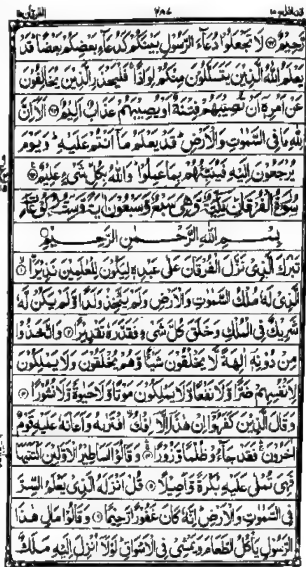 قد افلح ١٨ ٢٨٧ الفرقان ٢٥
رَّحِيْمٌ ﴿۶۲﴾ لَا تَجْعَلُوْا دُعَآءَ الرَّسُوْلِ بَيْنَكُمْ كَدُعَآءِ بَعْضِكُمْ بَعْضًا ؕ قَدْ
يَعْلَمُ اللّٰهُ الَّذِيْنَ يَتَسَلَّلُوْنَ مِنْكُمْ لِوَاذًا ۚ فَلْيَحْذَرِ الَّذِيْنَ يُخَالِفُوْنَ
عَنْ اَمْرِهٖۤ اَنْ تُصِيْبَهُمْ فِتْنَةٌ اَوْ يُصِيْبَهُمْ عَذَابٌ اَلِيْمٌ ﴿۶۳﴾ اَلَاۤ اِنَّ
لِلّٰهِ مَا فِى السَّمٰوٰتِ وَالْاَرْضِ ؕ قَدْ يَعْلَمُ مَاۤ اَنْتُمْ عَلَيْهِ ؕ وَيَوْمَ
يُرْجَعُوْنَ اِلَيْهِ فَيُنَبِّئُهُمْ بِمَا عَمِلُوْا ؕ وَاللّٰهُ بِكُلِّ شَىْءٍ عَلِيْمٌ ﴿۶۴﴾
سُوْرَةُ الْفُرْقَانِ مَكِّيَّةٌ وَّهِىَ سَبْعٌ وَّسَبْعُوْنَ اٰيَةً وَّسِتُّ رُكُوْعَاتٍ
بِسْمِ اللّٰهِ الرَّحْمٰنِ الرَّحِيْمِ
تَبٰرَكَ الَّذِىْ نَزَّلَ الْفُرْقَانَ عَلٰى عَبْدِهٖ لِيَكُوْنَ لِلْعٰلَمِيْنَ نَذِيْرًا ﴿۱﴾
اۨلَّذِىْ لَهٗ مُلْكُ السَّمٰوٰتِ وَالْاَرْضِ وَلَمْ يَتَّخِذْ وَلَدًا وَّلَمْ يَكُنْ لَّهٗ
شَرِيْكٌ فِى الْمُلْكِ وَخَلَقَ كُلَّ شَىْءٍ فَقَدَّرَهٗ تَقْدِيْرًا ﴿۲﴾ وَاتَّخَذُوْا
مِنْ دُوْنِهٖۤ اٰلِهَةً لَّا يَخْلُقُوْنَ شَيْئًا وَّهُمْ يُخْلَقُوْنَ وَلَا يَمْلِكُوْنَ
لِاَنْفُسِهِمْ ضَرًّا وَّلَا نَفْعًا وَّلَا يَمْلِكُوْنَ مَوْتًا وَّلَا حَيٰوةً وَّلَا نُشُوْرًا ﴿۳﴾
وَقَالَ الَّذِيْنَ كَفَرُوْۤا اِنْ هٰذَاۤ اِلَّاۤ اِفْكُ ۨافْتَرٰىهُ وَاَعَانَهٗ عَلَيْهِ قَوْمٌ
اٰخَرُوْنَ ۚ فَقَدْ جَآءُوْ ظُلْمًا وَّزُوْرًا ﴿۴﴾ وَقَالُوْۤا اَسَاطِيْرُ الْاَوَّلِيْنَ اكْتَتَبَهَا
فَهِىَ تُمْلٰى عَلَيْهِ بُكْرَةً وَّاَصِيْلًا ﴿۵﴾ قُلْ اَنْزَلَهُ الَّذِىْ يَعْلَمُ السِّرَّ
فِى السَّمٰوٰتِ وَالْاَرْضِ ؕ اِنَّهٗ كَانَ غَفُوْرًا رَّحِيْمًا ﴿۶﴾ وَقَالُوْا مَالِ هٰذَا
الرَّسُوْلِ يَاْكُلُ الطَّعَامَ وَيَمْشِىْ فِى الْاَسْوَاقِ ؕ لَوْلَاۤ اُنْزِلَ اِلَيْهِ مَلَكٌ